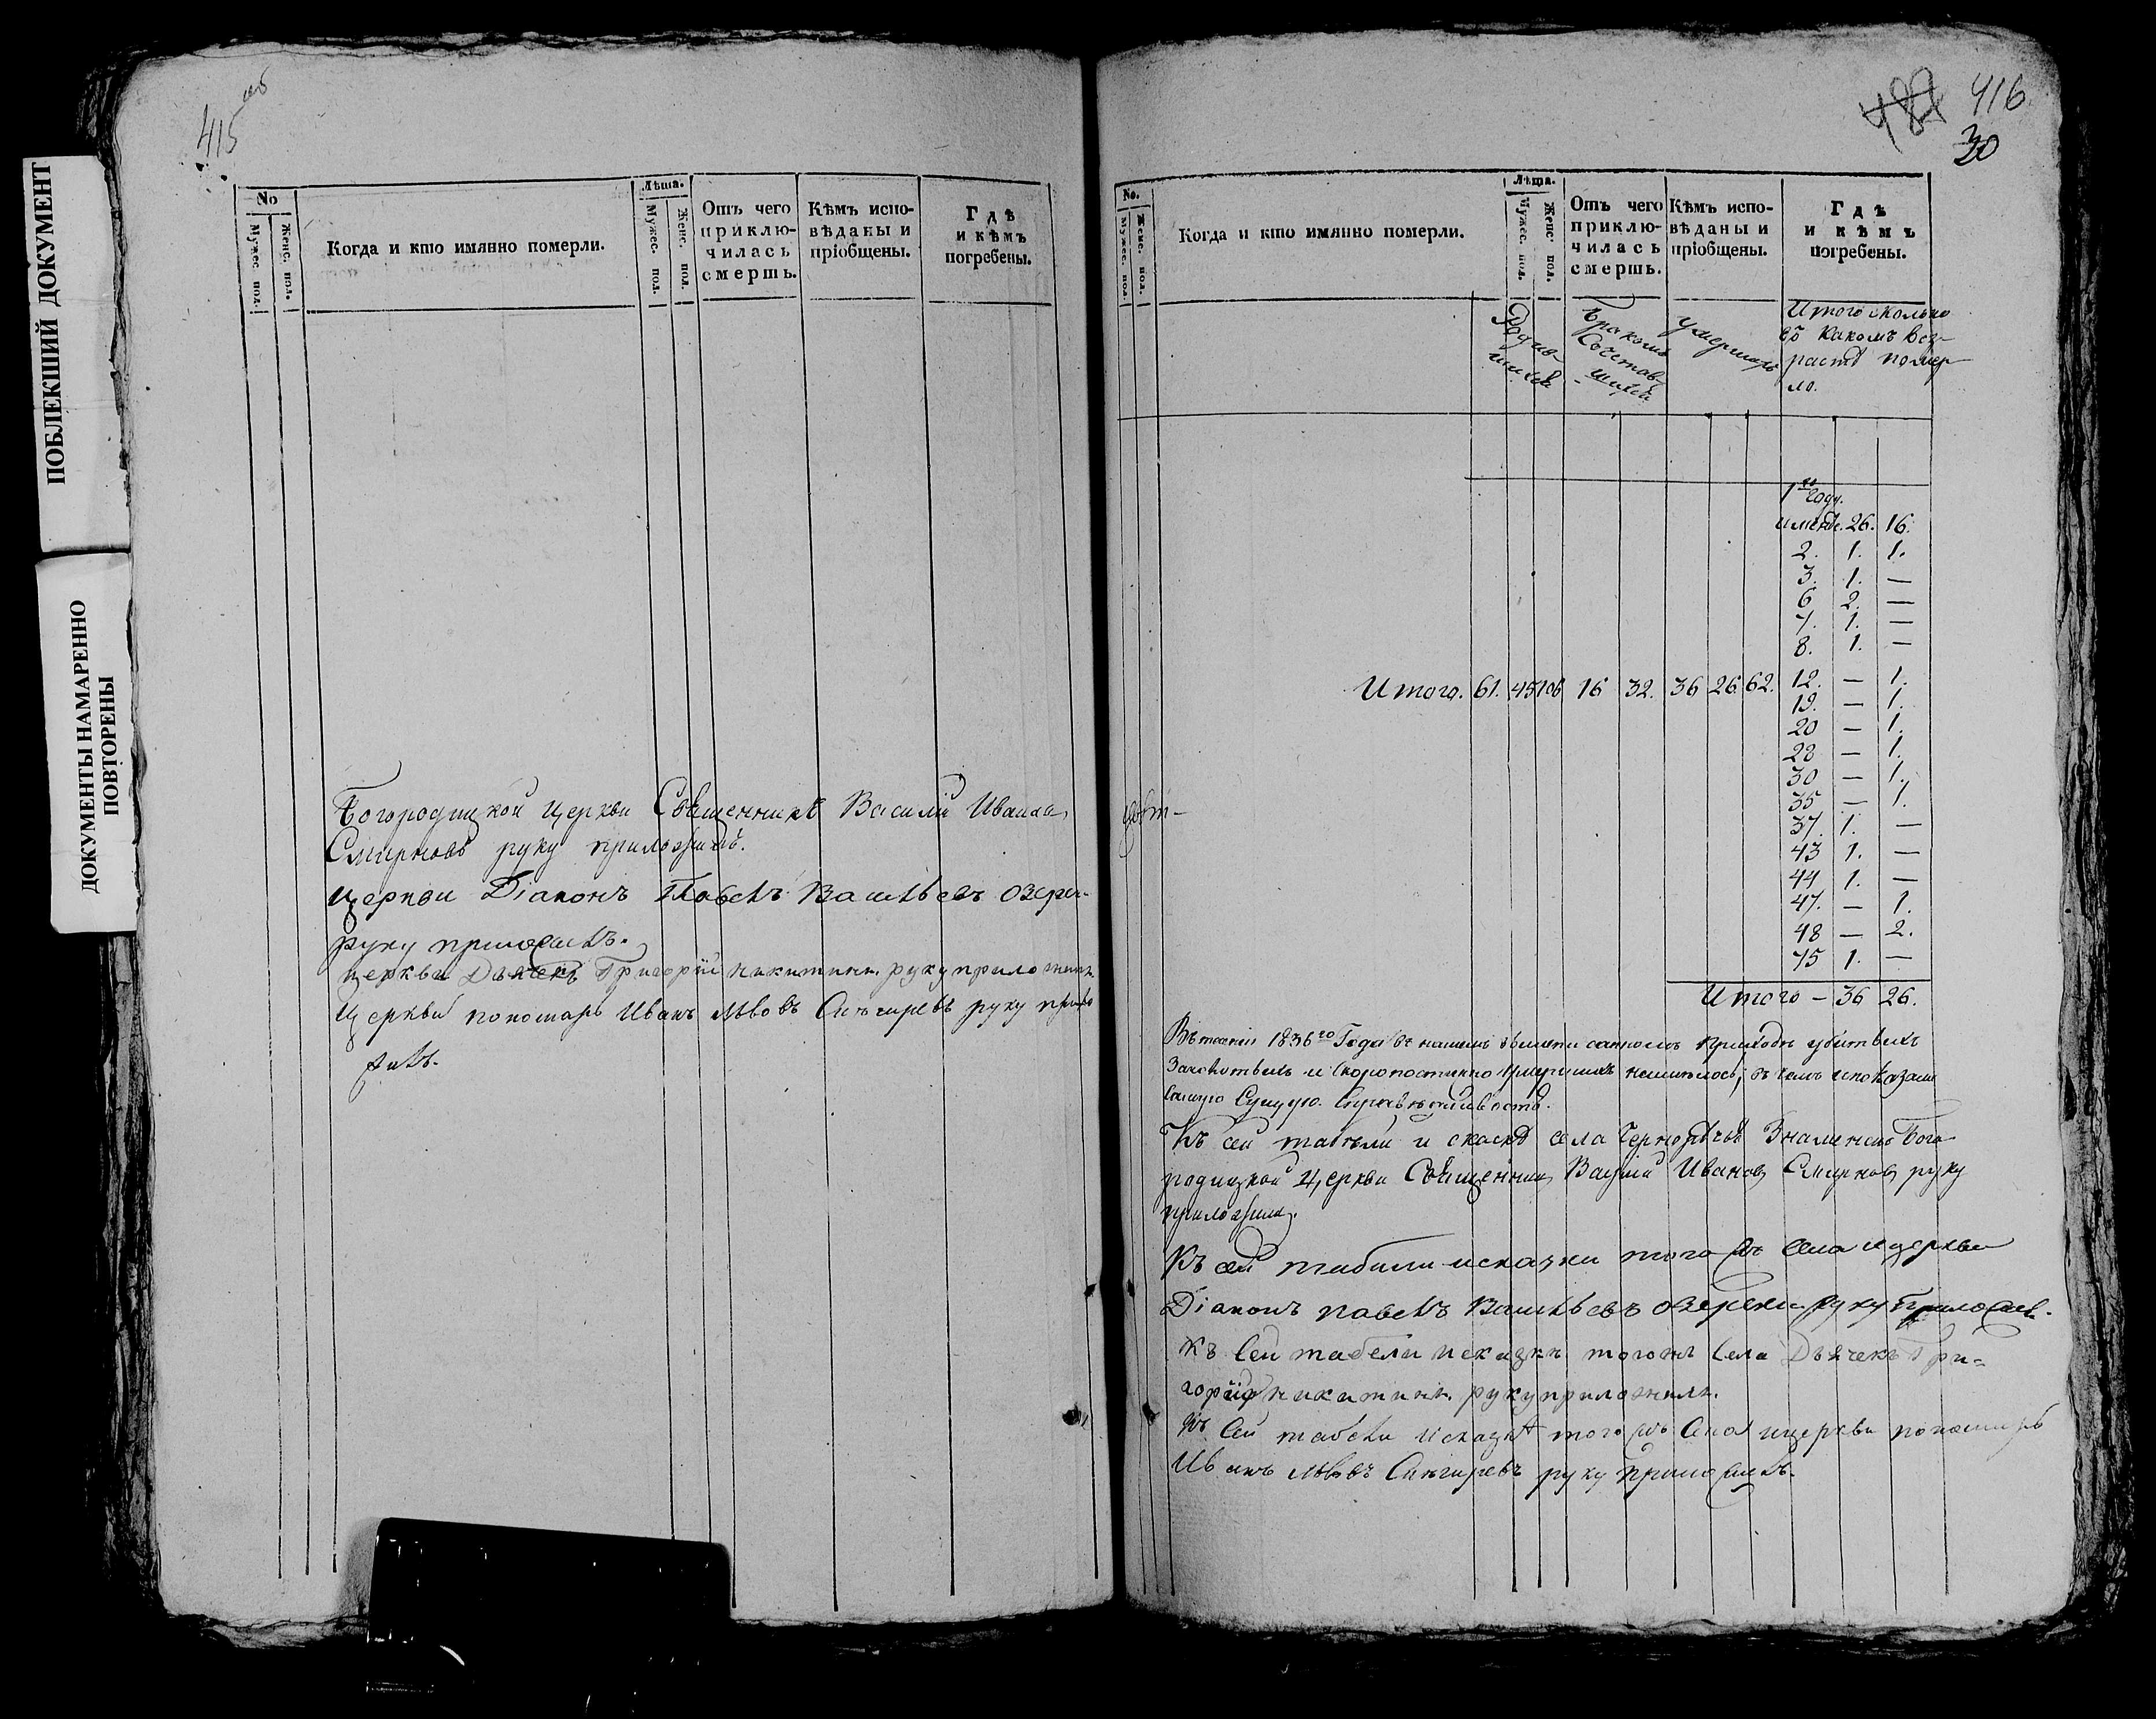 ПОБЛЕКШИЙ ДОКУМЕНТ
ДОКУМЕНТЫ НАМАРЕННО
ПОВТОРЕНЫ
415 об
No
Мужес. пол.
Женс. пол.
Когда и кто имянно померли.
Лѣта.
Мужес. пол.
Женс. пол.
Отъ чего
приклю-
чилась
смерть.
Кѣмъ испо-
вѣданы и
пріобщены.
Гдѣ
и кѣмъ
погребены.
Богородицкой церкви Священникъ Василій Иванов
Смирновъ руку приложилъ.
церкви Діаконъ Павелъ Васильевъ
руку приложилъ.
церкви Дьячекъ Григорій никитинъ руку приложилъ
Церкви пономарь Иванъ львовъ Снѣгиревъ руку прило
жилъ.
416
30
No.
Мужес. пол.
Женс. пол.
Когда и кто имянно померли.
Лѣта.
Мужес. пол.
Женс. пол.
Отъ чего
приклю-
чилась
смерть.
Кѣмъ испо-
вѣданы и
пріобщены.
Гдѣ
и кѣмъ
погребены.
Родив-
шихся
Бракомъ
Сочетав-
шихся
Умершихъ
Итого сколько
въ какомъ воз-
растѣ помер-
ло.
1го году.
26. 16.
2. 1. 1.
3. 1. —
6 2. —
7. 1. —
8. 1. —
Итого. 61. 45 106 16 32. 36 26 62. 12. — 1.
19. — 1.
20 — 1.
28 — 1.
30 — 1.
35 — 1.
37. 1. —
43 1. —
44 1. —
47. — 1.
48 — 2.
75 1. —
Итого — 36 26.
Въ теченіи 1836го Года въ нашемъ приходѣ убитыхъ
и скоропостижно умершихъ неимѣлось, въ чемъ и показали
самую Сущую Справедливость.
Къ сей табели и сказкѣ села Черноречья Знаменско Бого
родицкой Церкви Священник Василій Иванов Смирнов руку
приложил.
Къ сей табели и сказки того жъ села и церкви
Діаконъ павелъ Васильевъ руку приложилъ.
Къ Сей табели и сказкѣ тогожъ Села Дьячекъ Гри-
горій никитинъ руку приложилъ.
Къ Сей табели и сказкѣ того жъ Села и церкви пономарь
Иванъ львовъ Снѣгиревъ руку приложилъ.